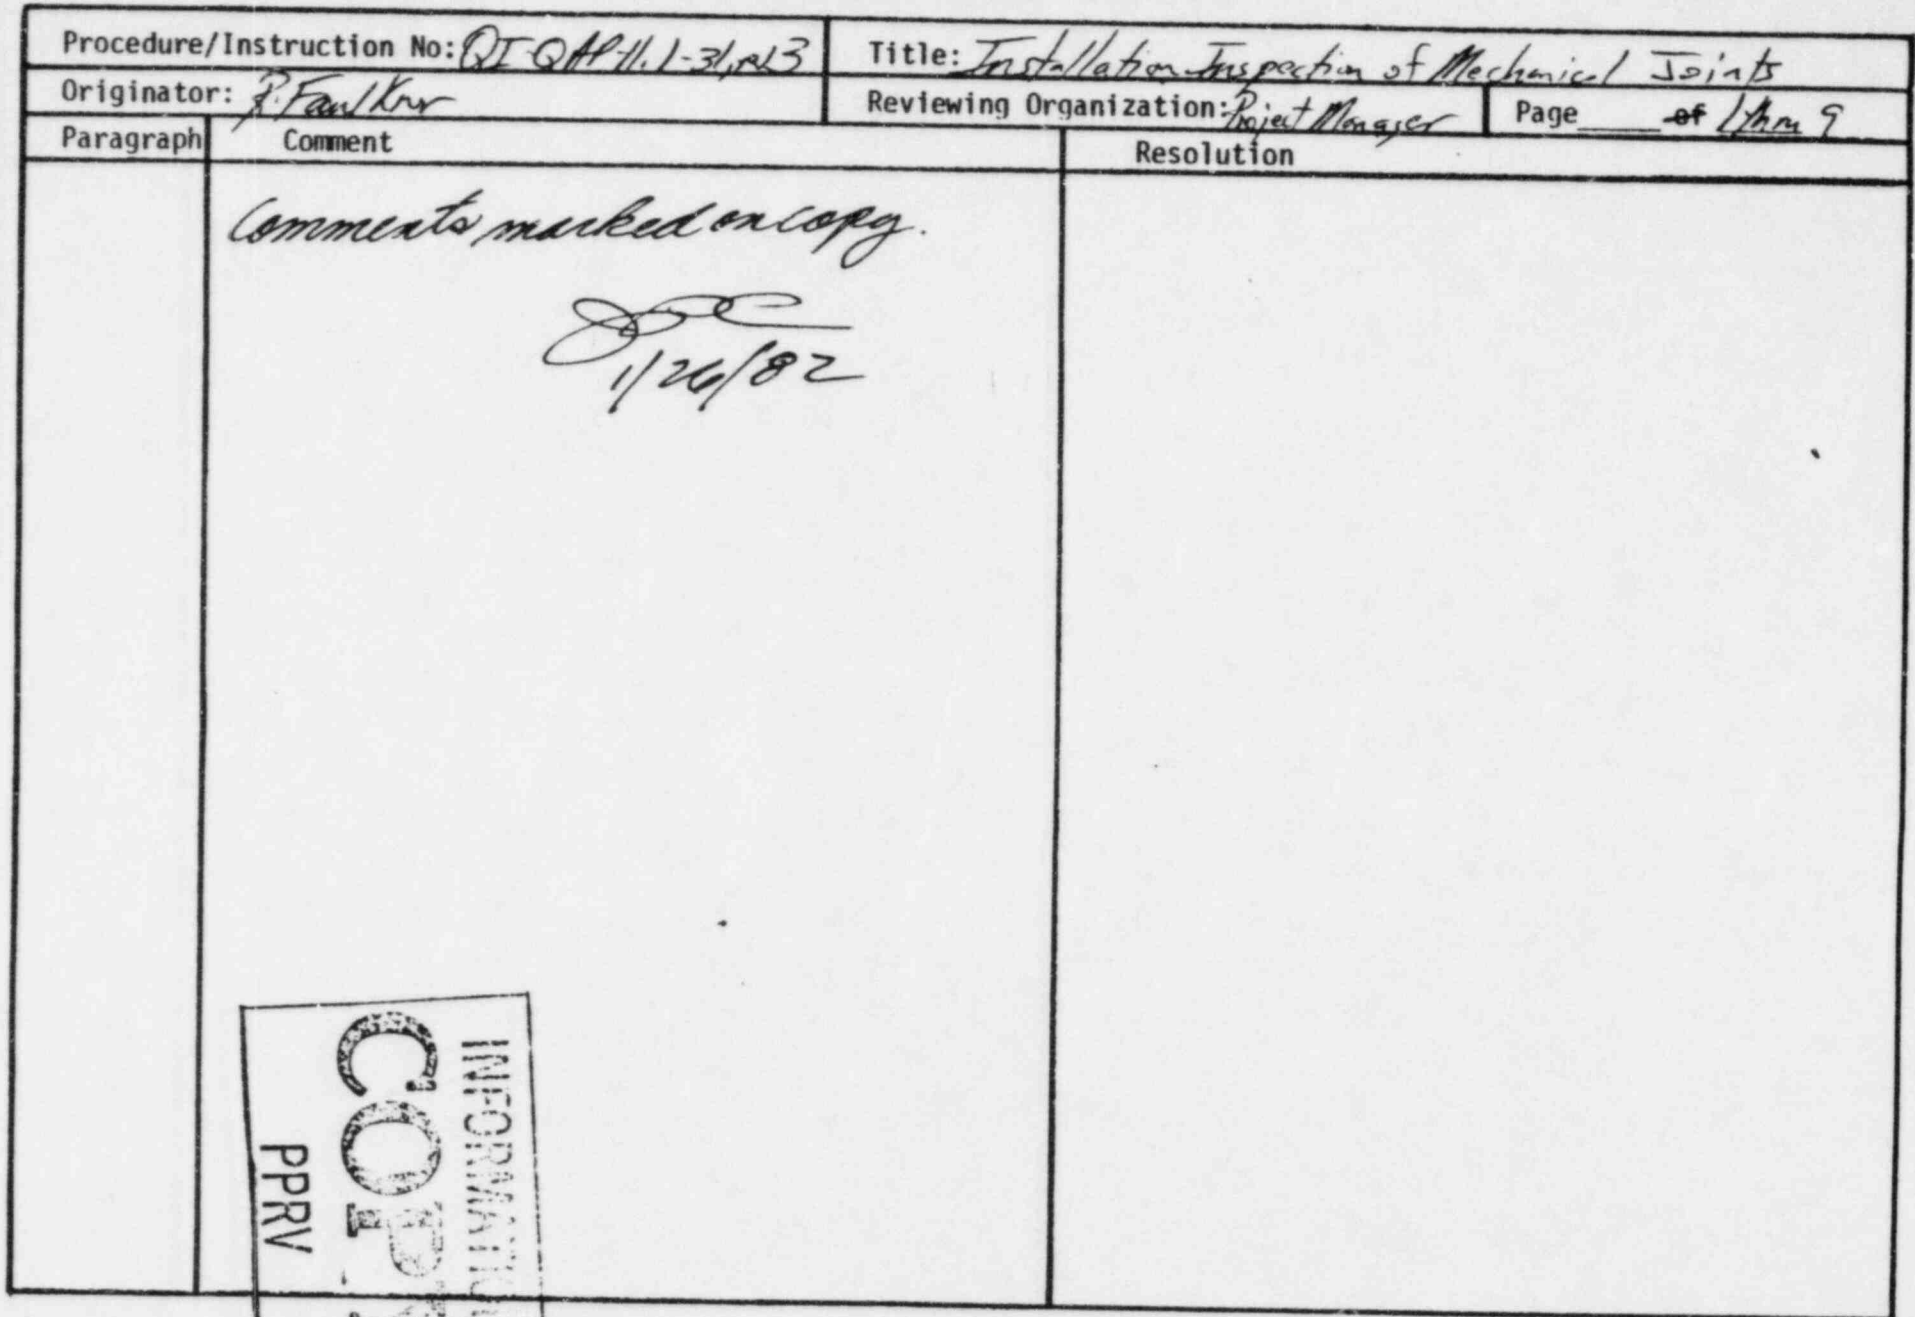 Procedure/Instruction No: QI-QAP-11.1-31, R13
Title: Installation Inspection of Mechanical Joints
Originator: P. Faulkner
Reviewing Organization: Project Manager
Page____ of 1 thru 9
Paragraph
Comment
Resolution
Comments marked on copy.
1/26/82
INFORMATION
COPY
PPRV